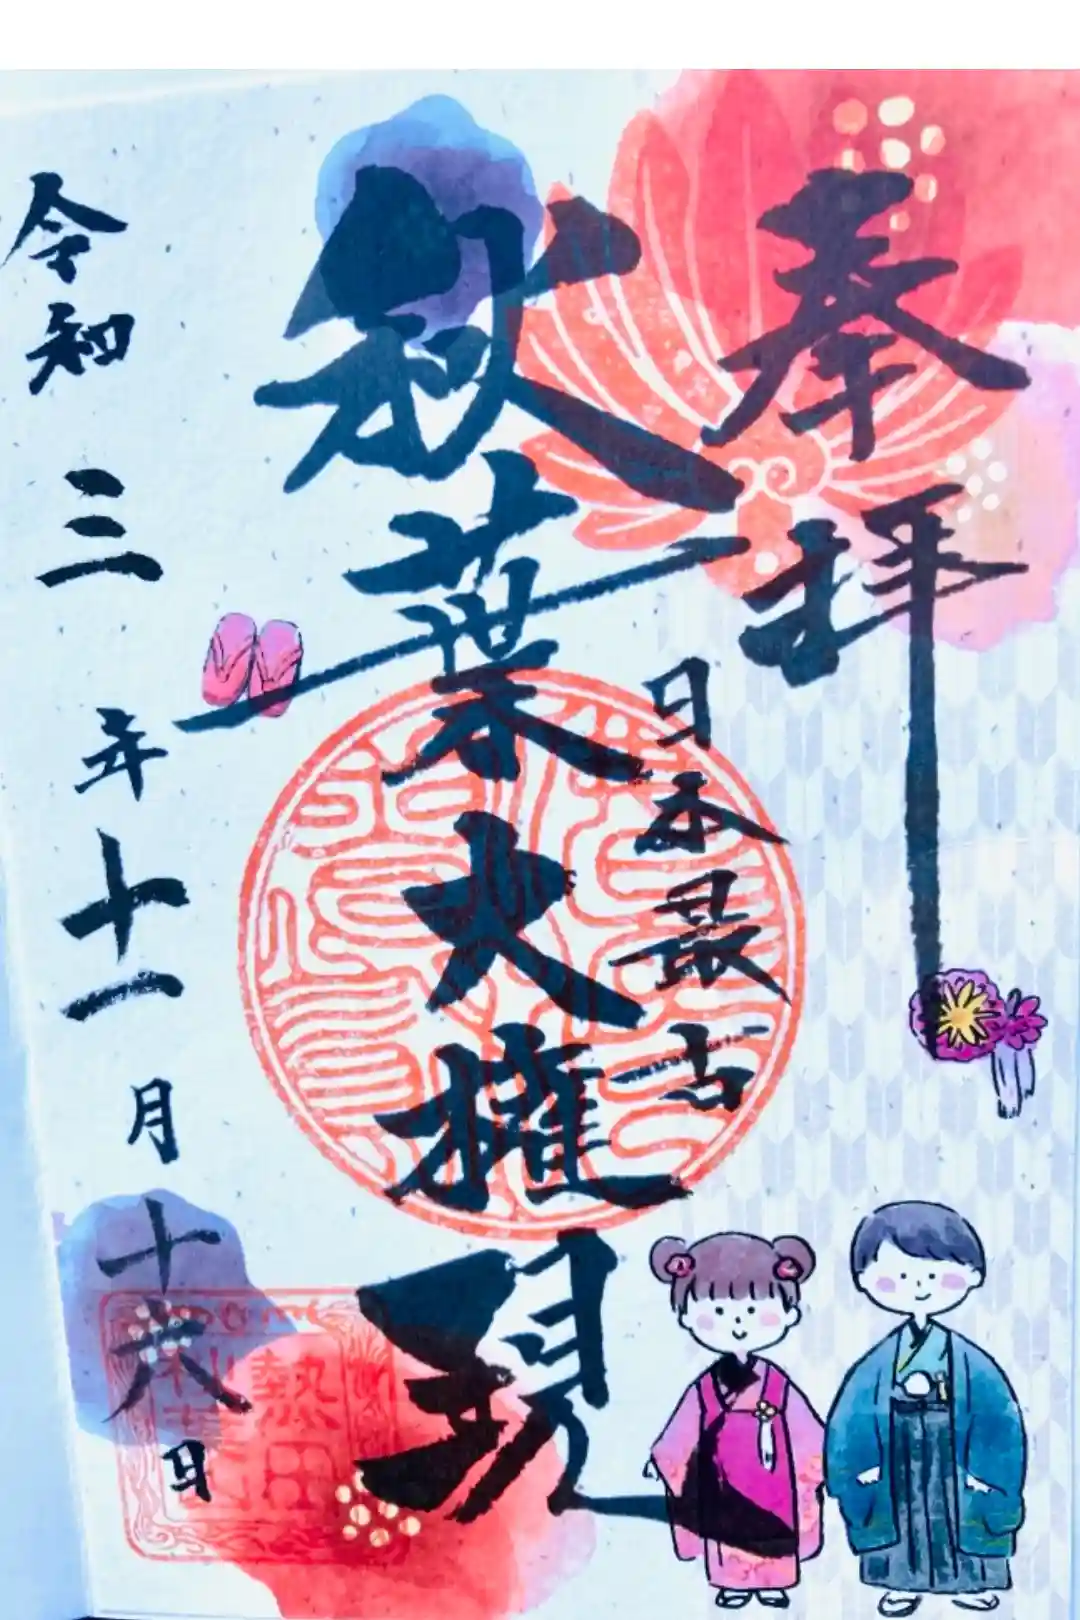 奉拝
日本最古
秋葉大権現
令和三年十一月十六日
熱田
秋葉